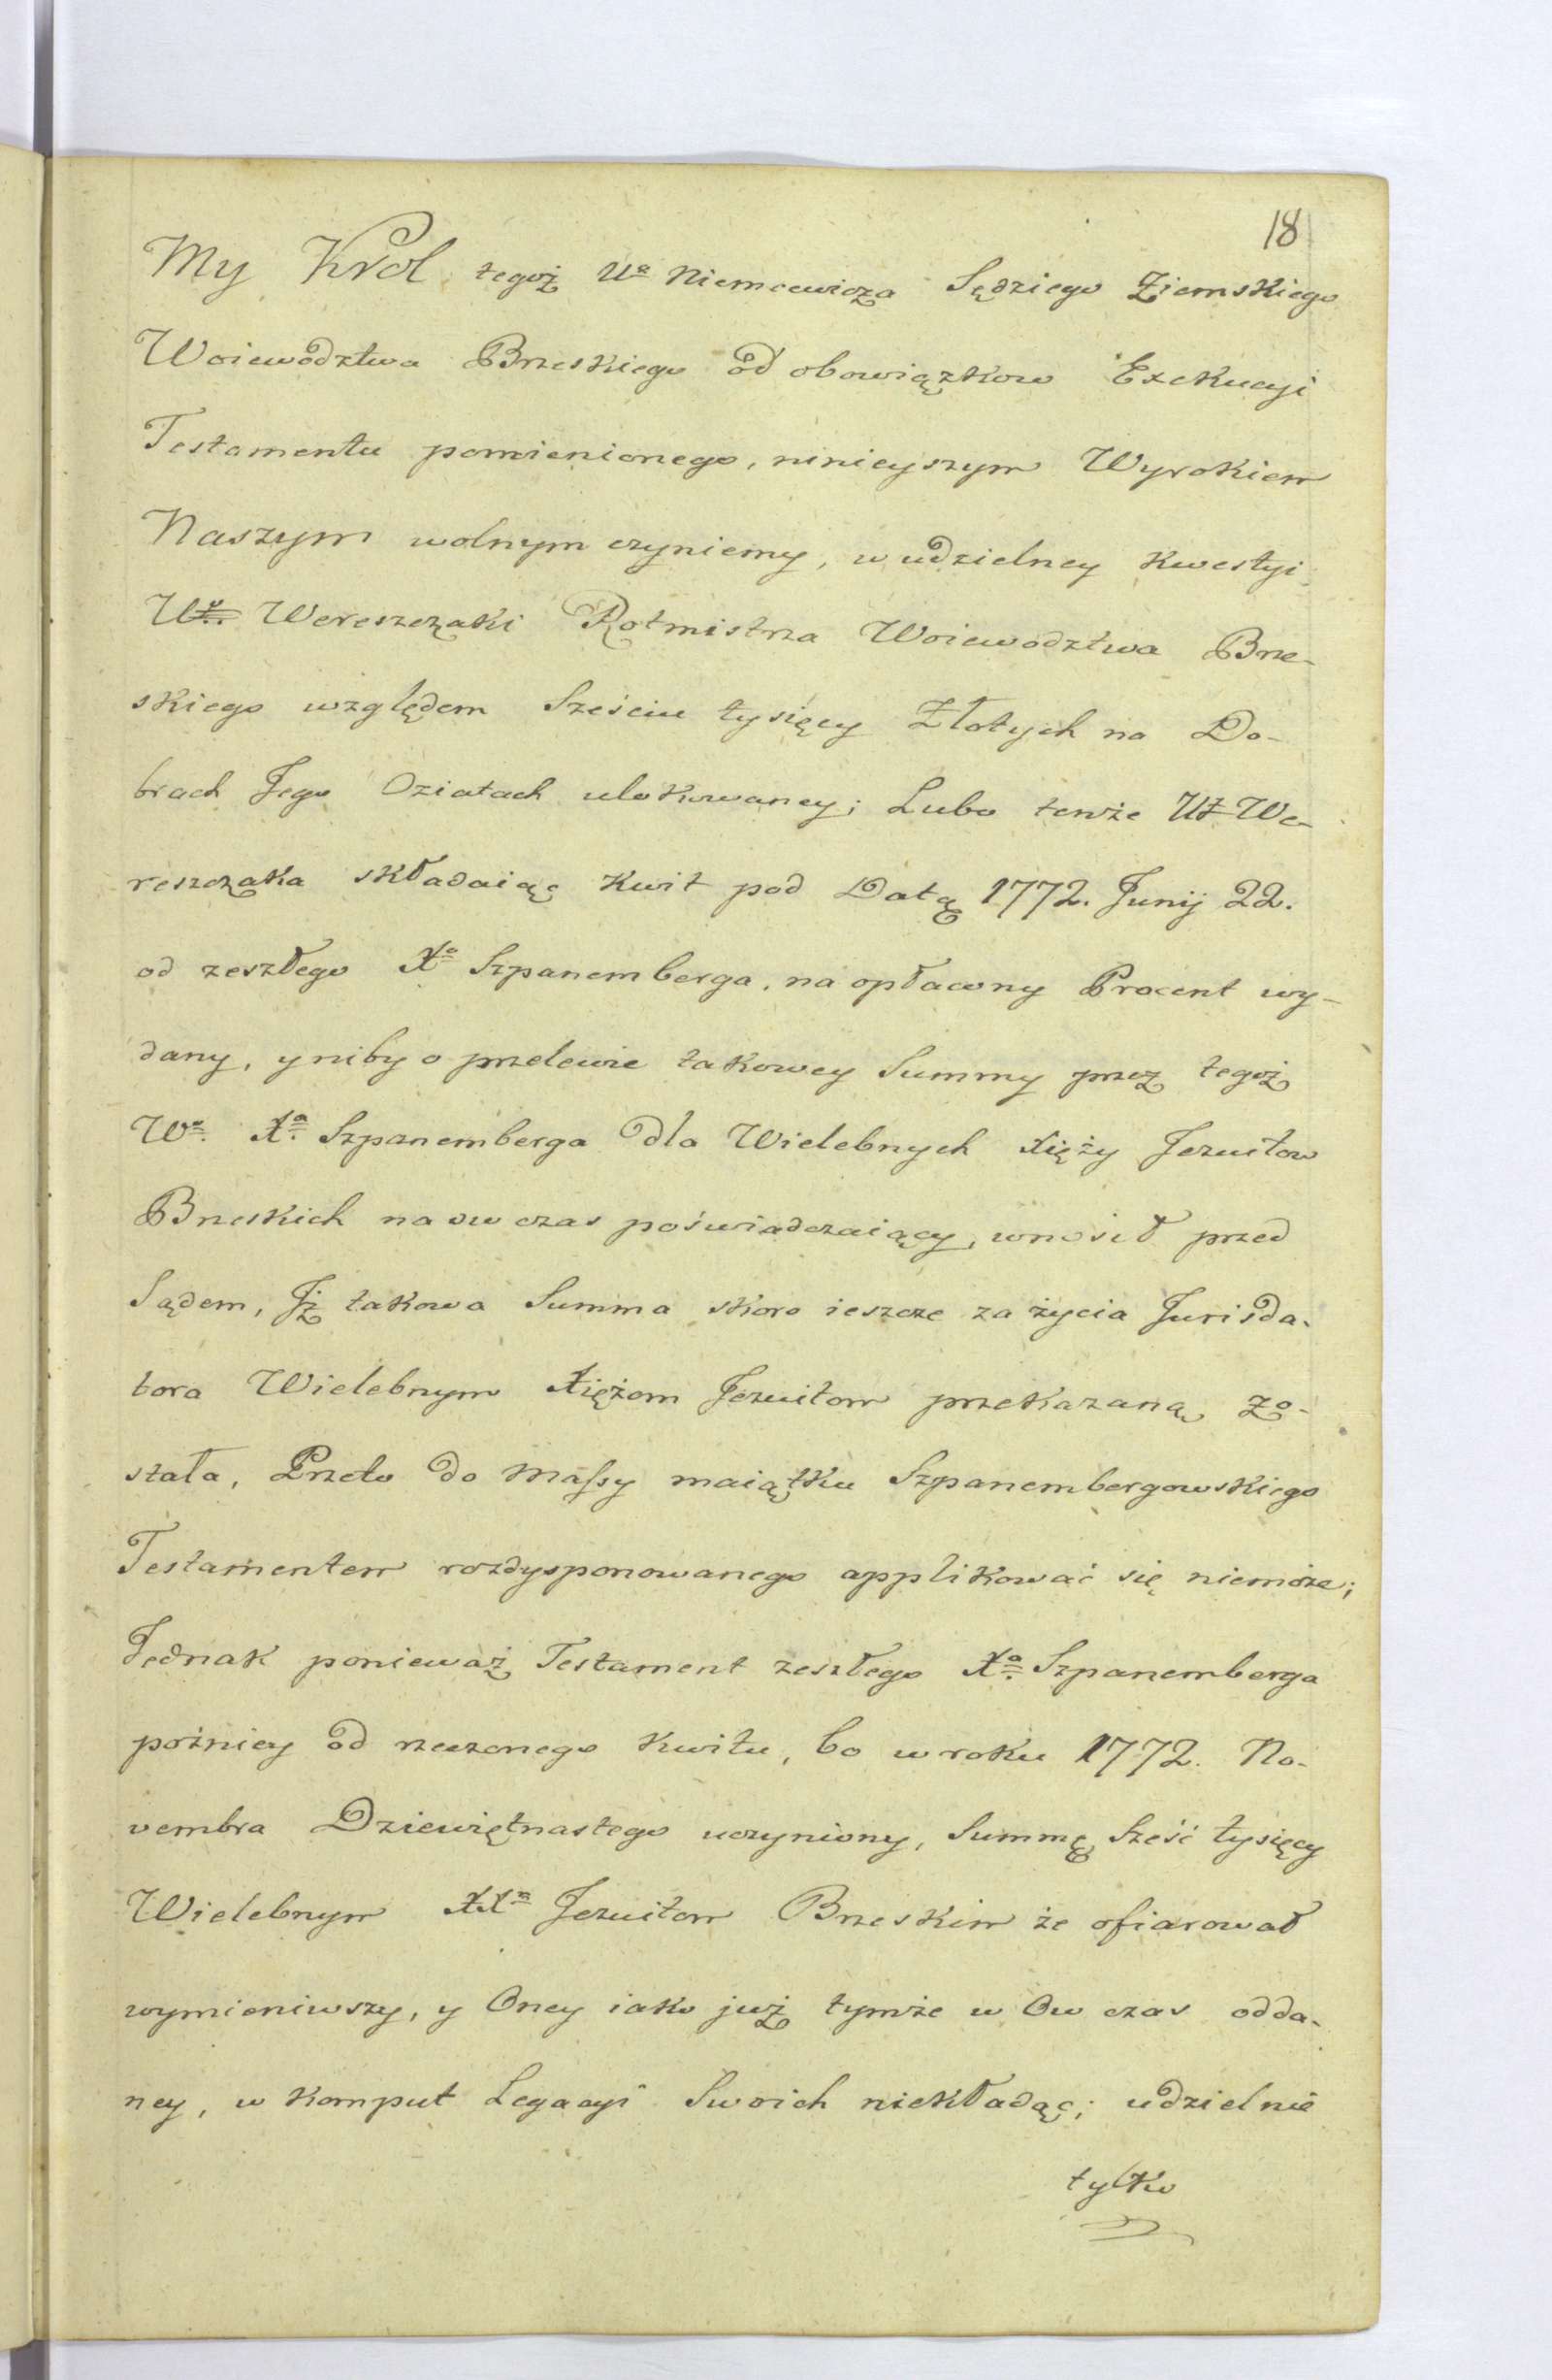 18
My Krol tegoż Uo Niemcewicza Sędziego Ziemskiego
Woiewodztwa Brzeskiego od obowiązkow Exekucyi
Testamentu pomienionego, ninieyszym Wyrokiem
Naszym wolnym czyniemy, w udzielney kwestyi
Wereszczaki Rotmistrza Woiewodztwa Brze-
skiego względem Sześciu tysięcy Złotych na Do-
brach Jego Oziatach ulokowaney; Lubo tenże Ur We-
reszczaka składaiąc kwit pod Datą 1772. Junij 22.
od zeszłego Xo Szpanemberga, na opłacony Procent wy-
dany, y niby o przelewie takowey Summy przez tegoż
Wo. Xa. Szpanemberga dla Wielebnych Xięży Jezuitow
Brzeskich na ow czas poświadczaiący, wnosił przed
Sądem, Iż takowa Summa skoro ieszcze za życia Jurisda-
tora Wielebnym Xiężom Jezuitom przekazaną zo-
stała, Przeto do Massy maiątku Szpanembergowskiego
Testamentem rozdysponowanego applikować się niemoże;
Jednak ponieważ Testament zeszłego Xa. Szpanemberga
pożniey od rzeczonego kwitu, bo w roku 1772. No-
vembra Dziewiętnastego uczyniony, Summę Sześć tysięcy
Wielebnym XXm Jezuitom Brzeskim że ofiarował
wymieniwszy, y Oney iako już tymże w Ow czas odda-
ney, w komput Legacyi Swoich niekładąc; udzielnie
tylko